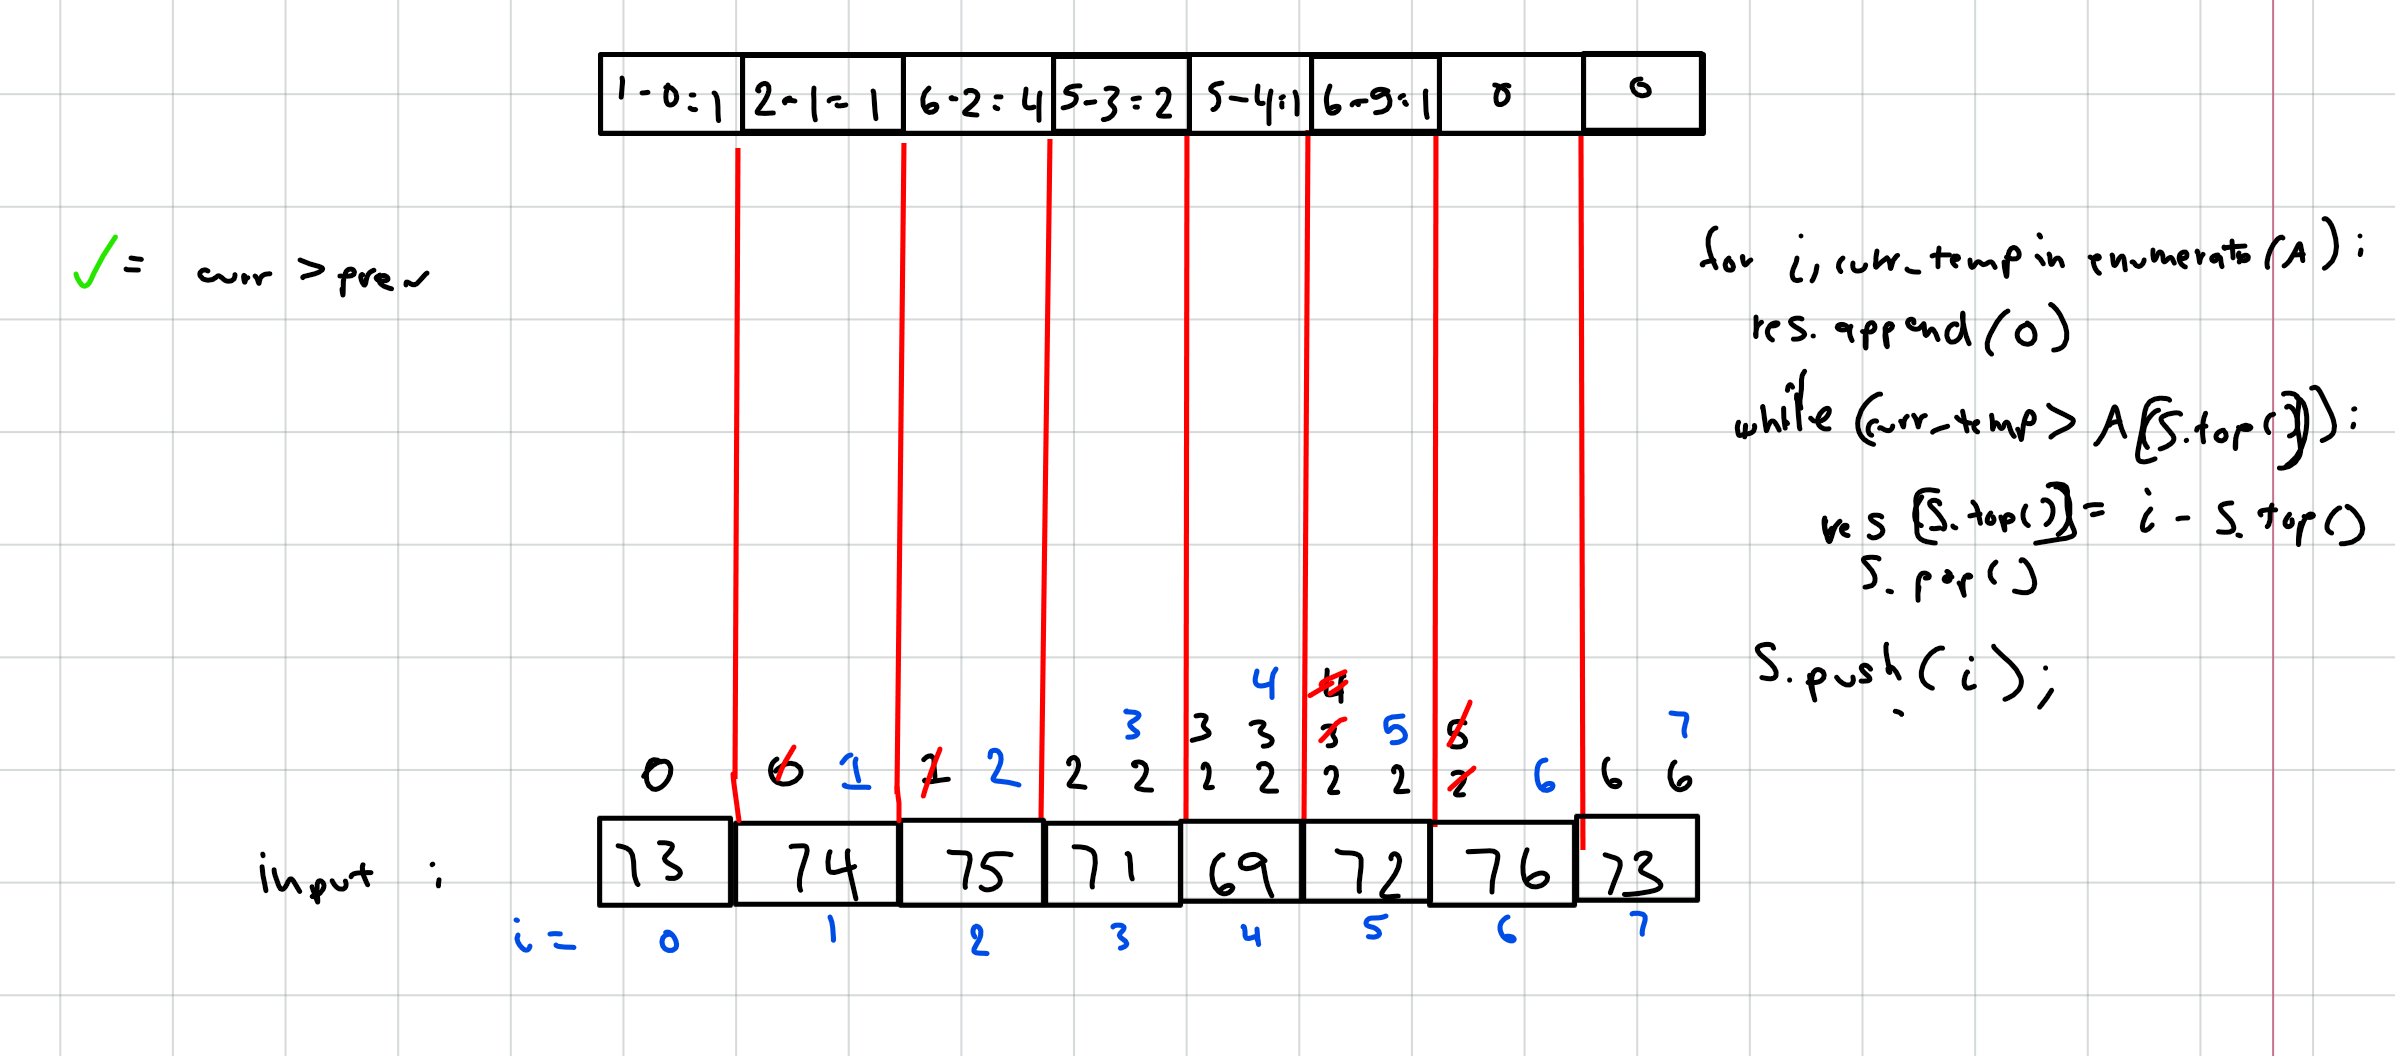 1-0=1 2-1=1 6-2=4 5-3=2 5-4=1 6-5=1 0 0
✓= curr >prev
for i, curr_temp in enumerate(A):
res.append(0)
while (curr_temp > A[S.top()]):
res[S.top()] = i - S.top()
S.pop()
S.push(i);
4 4
3 3 3 3 5 5 7
0 0 1 1 2 2 2 2 2 2 2 2 6 6 6
input : 73 74 75 71 69 72 76 73
i= 0 1 2 3 4 5 6 7